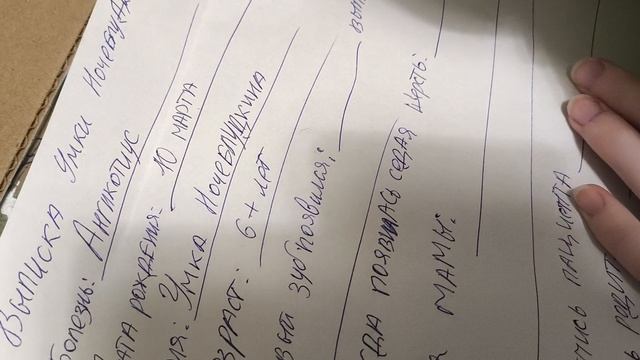 Выписка Умки Ночебудк
болезнь: Антикотиус
ата рождения: 10 марта
мя: Умка Ночебудкина
зраст: 6+ лет
вый зуб появился:
вып
да появилась седая шерсть:
мамы:
пись пациента
родит